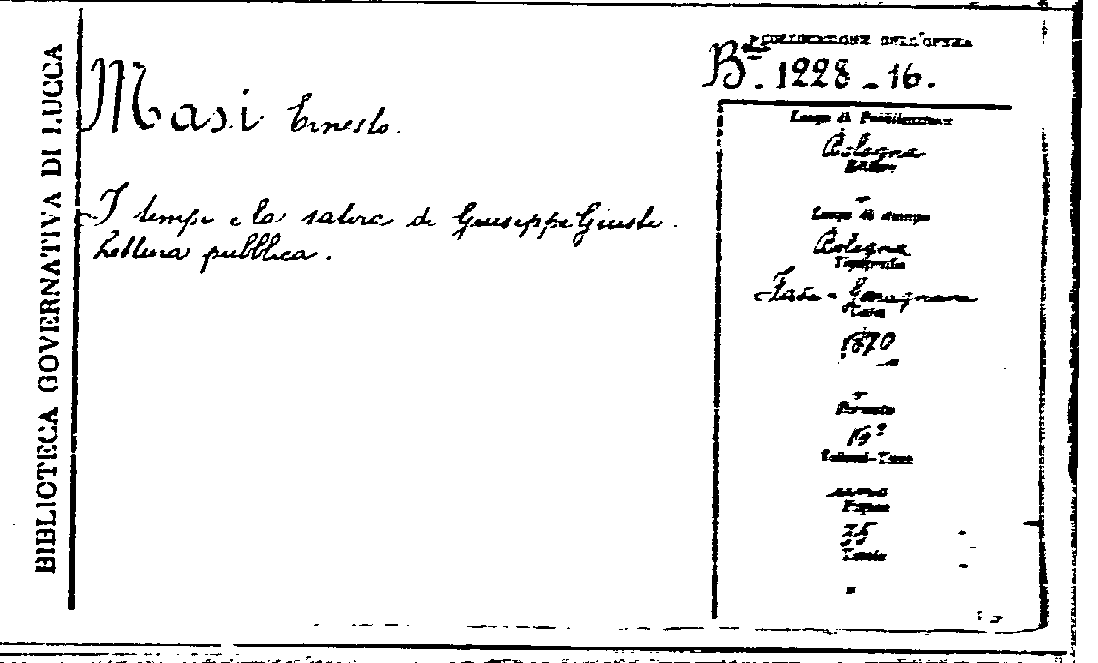 BIBLIOTECA GOVERNATIVA DI LUCCA
Masi Ernesto.
I tempi e la satira di Giuseppe Giusti.
Lettura pubblica.
PUBBLICAZIONE DELL'OPERA
Bª. 1228 - 16.
Luogo di Pubblicazione
Bologna
Editore
-
Luogo di stampa
Bologna
Tipografia
Fava - Garagnani
Data
1870
Formato
16º
Volumi-Tomi
uno
Pagine
35
Tavole